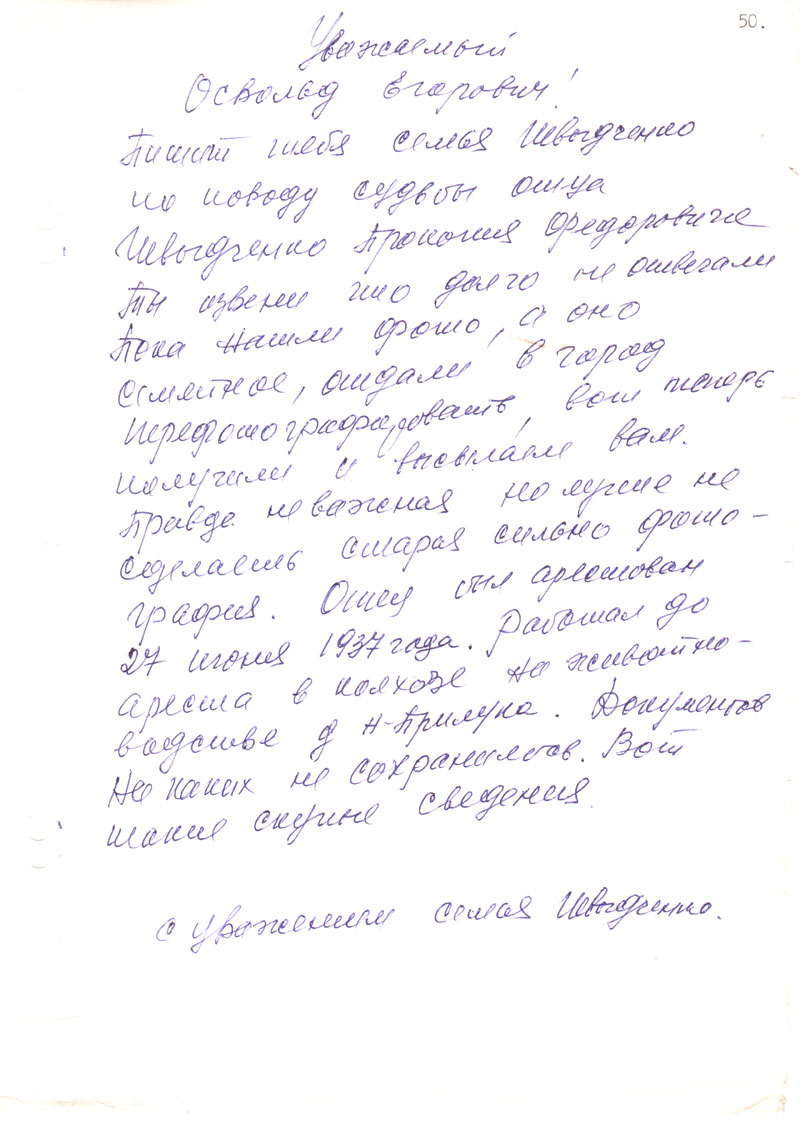 50.
Уважаемый
Освольд Егорович!
Пишит тебя семья Швыдченко
по поводу судьбы отца
Швыдченко Прокопия Федоровича
Ты извени что долго не отвечали
Пока нашли фото, а оно
семейное, отдали в город
перефотографировать, вот теперь
получили и высылаем вам.
Правда неважная но лучше не
сделаешь старая сильно фото-
графия. Отец был арестован
27 июня 1937 года. Работал до
ареста в колхозе на животно-
водстве д Н-Прилука. Документов
Не каких не сохранилось. Вот
такие скупые сведения.
С уважением семья Швыдченко.